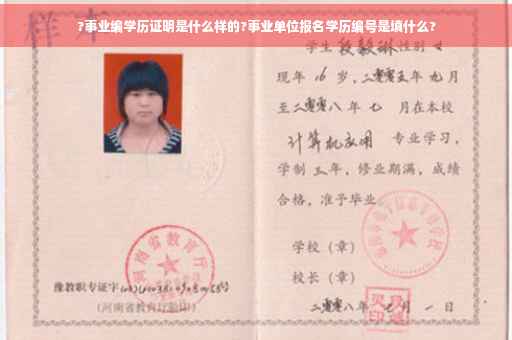 ?事业编学历证明是什么样的?事业单位报名学历编号是填什么?
样本
学生段毅琳性别女
现年 16 岁，二零零五年九月
至二零零八年七 月在本校
计算机应用 专业学习，
学制三年，修业期满，成绩
合格，准予毕业
学校（章）
校长（章）
河南省教育厅
豫教职专证字
(河南省教育厅验印)
二零零八年七月一日